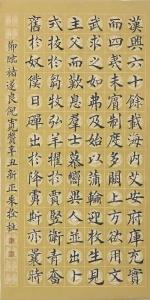 漢興六十餘載海內艾安府庫充實
而四夷未賓制度多闕上方欲用文
武求之如弗及始以蒲輪迎枚生見
主父而歎息群士慕嚮異人並出卜
式拔於芻牧弘羊擢於賈豎衛青
奮於奴僕日磾出於降虜斯亦曩時
節臨褚遂良倪寬贊辛丑新正朱拴柱